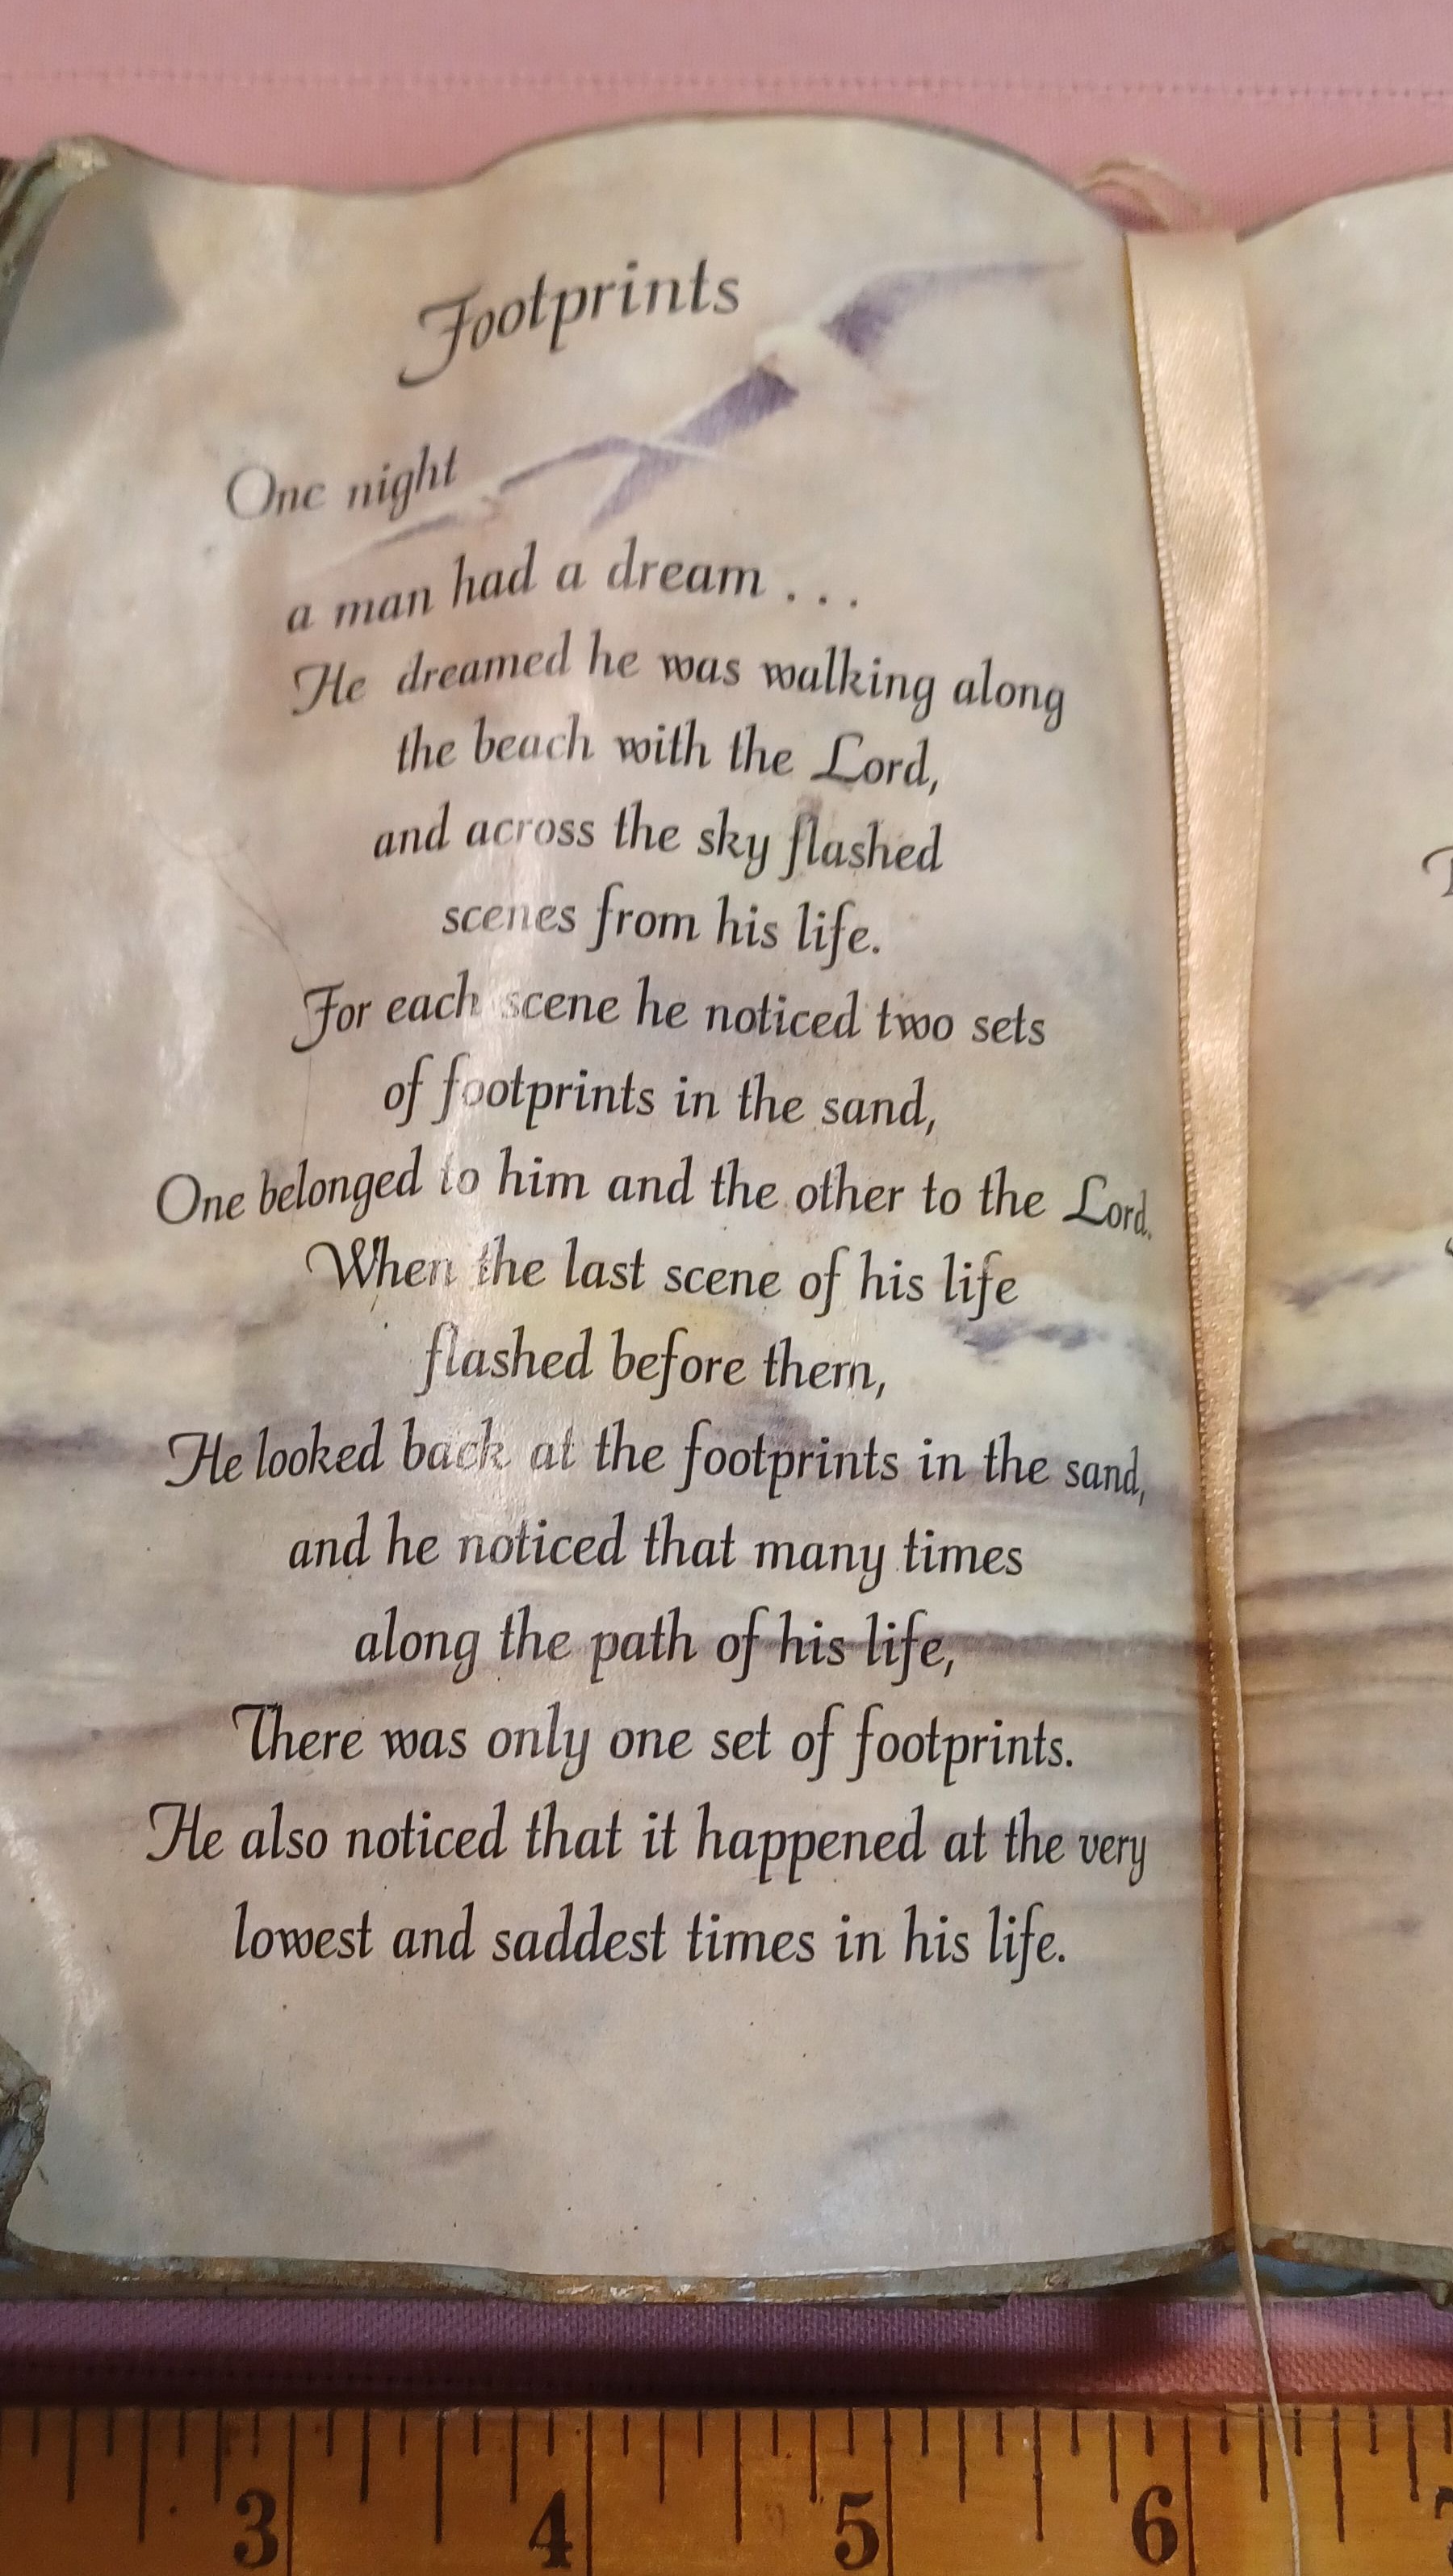 Footprints
One night
a man had a dream . . .
He dreamed he was walking along
the beach with the Lord,
and across the sky flashed
scenes from his life.
For each scene he noticed two sets
of footprints in the sand,
One belonged to him and the other to the Lord.
When the last scene of his life
flashed before them,
He looked back at the footprints in the sand,
and he noticed that many times
along the path of his life,
There was only one set of footprints.
He also noticed that it happened at the very
lowest and saddest times in his life.
3 4 5 6